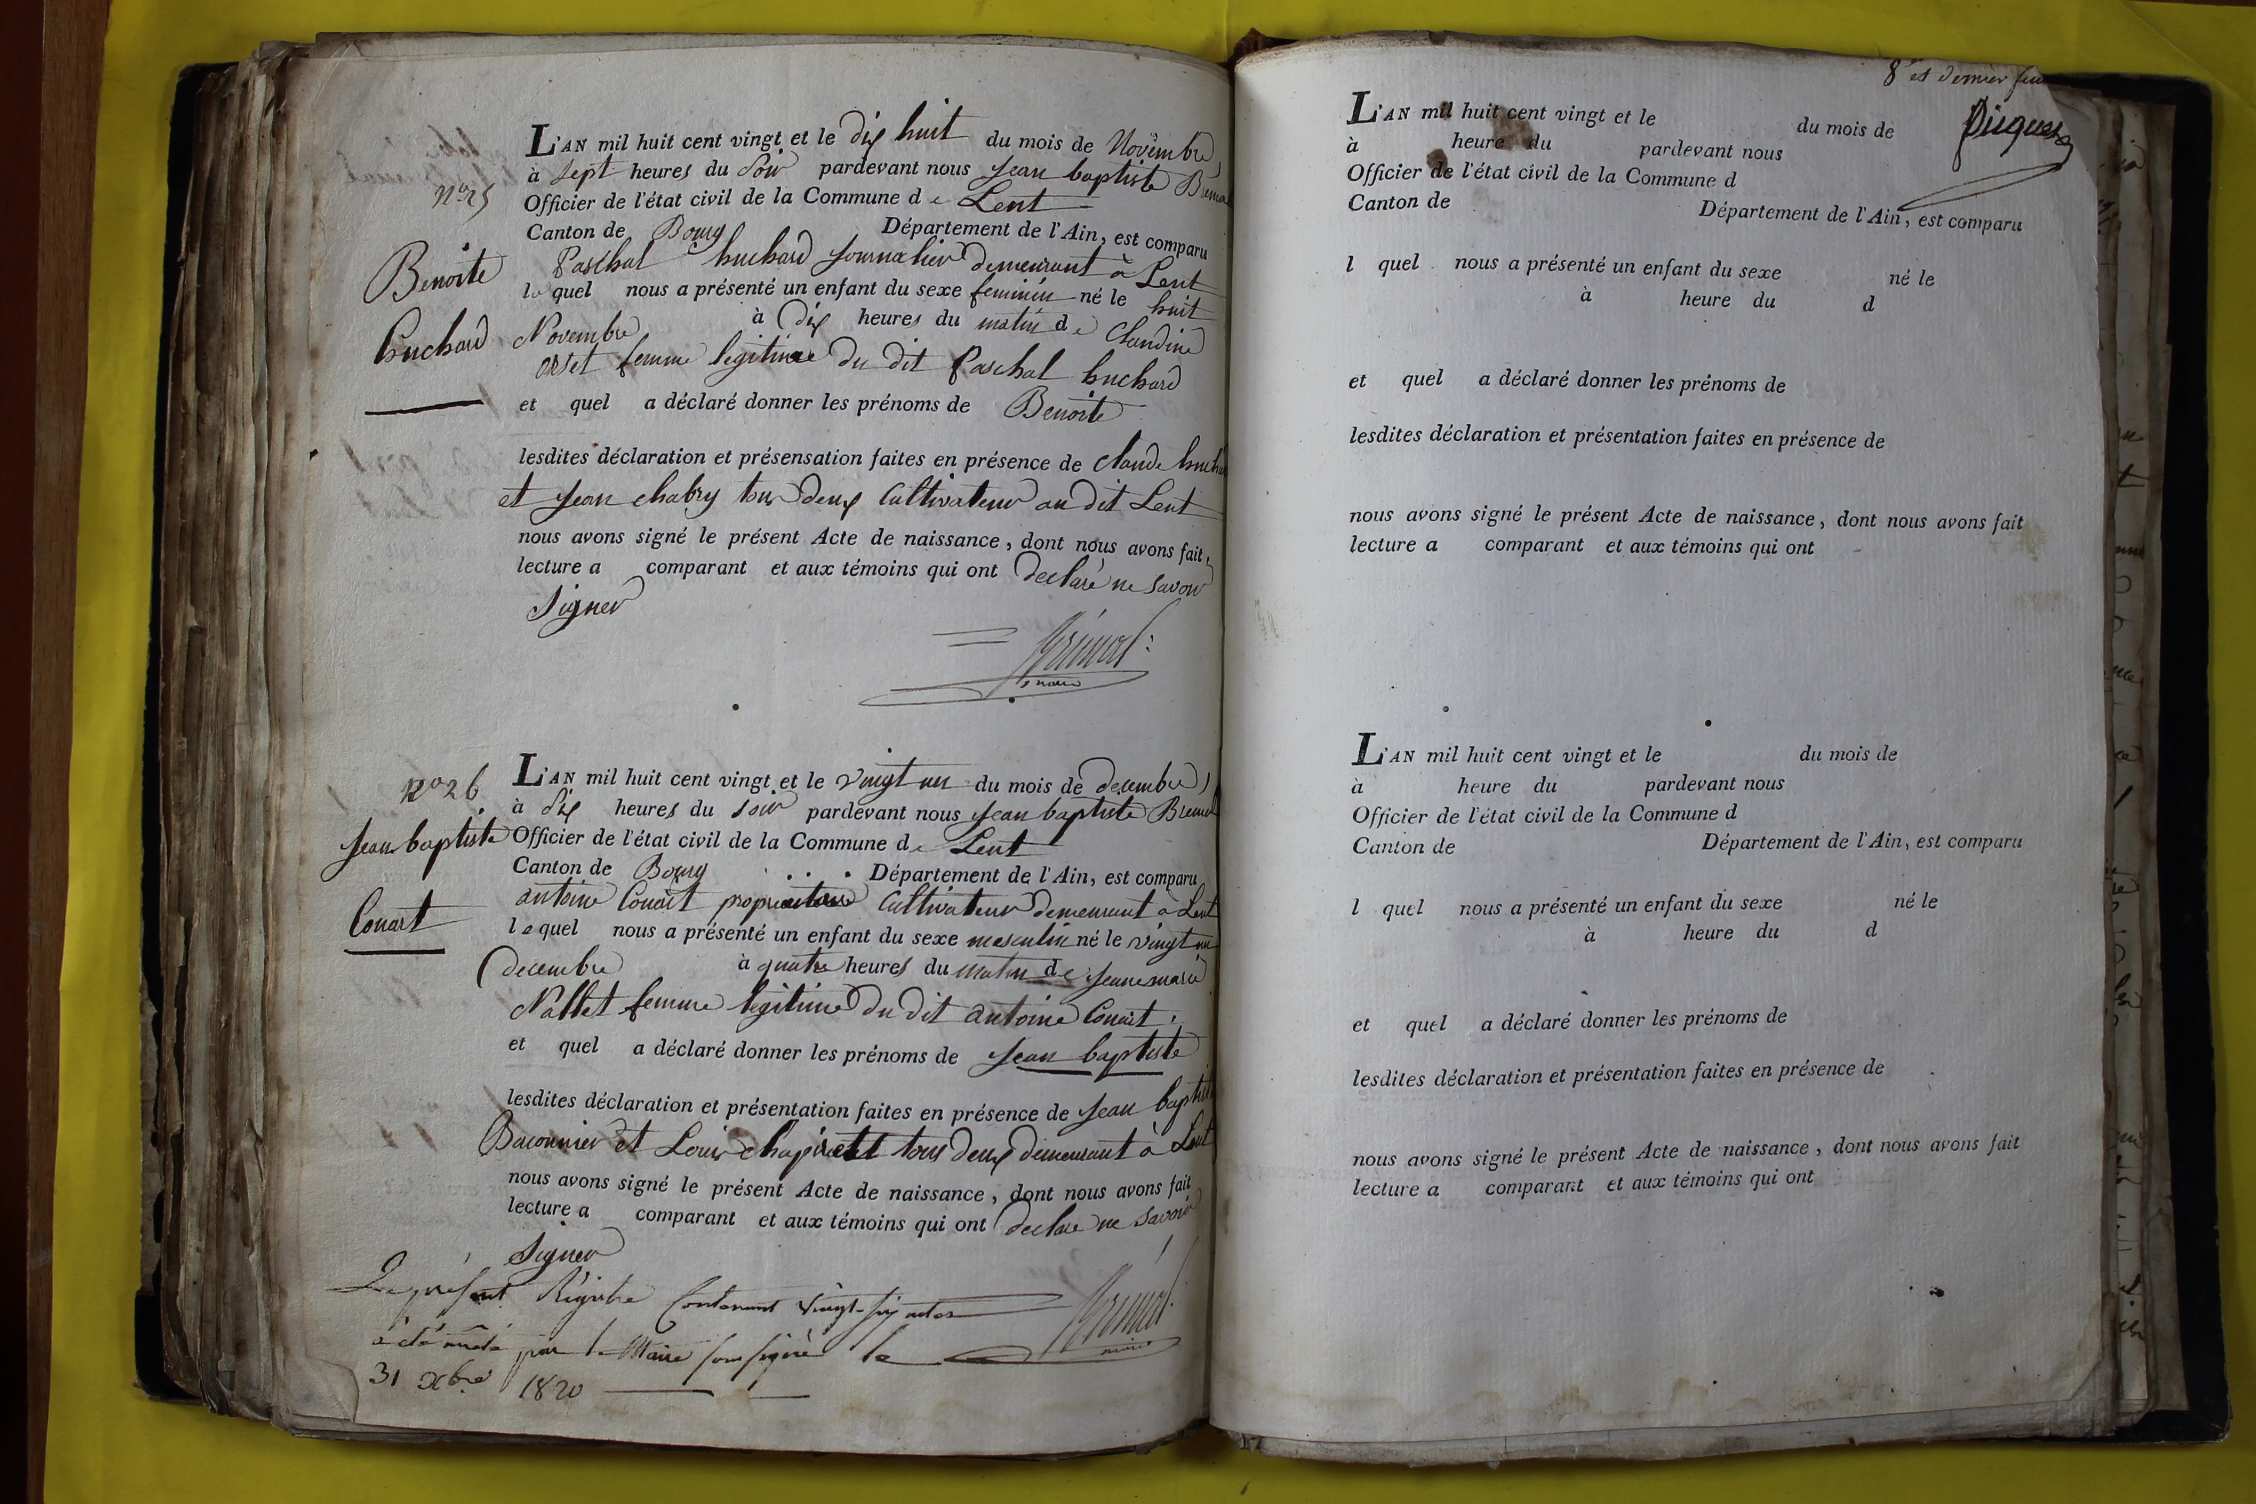 L'AN mil huit cent vingt et le dix huit du mois de Novembre
à sept heures du soir pardevant nous jean baptiste
Officier de l'état civil de la Commune de Lent
Canton de Bourg Département de l'Ain, est comparu
Paschal huchard journalier demeurant à Lent
lequel nous a présenté un enfant du sexe feminin né le huit
Novembre à dix heures du matin de Claudine
femme legitime du dit Paschal huchard
et quel a déclaré donner les prénoms de Benoite
lesdites déclaration et présensation faites en présence de claude
et jean chabry tous deux Cultivateur au dit Lent
nous avons signé le présent Acte de naissance, dont nous avons fait
lecture a comparant et aux témoins qui ont declaré ne savoir
signer
maire
N° 25
Benoite
huchard
L'AN mil huit cent vingt et le vingt un du mois de decembre
à dix heures du soir pardevant nous jean baptiste
Officier de l'état civil de la Commune de Lent
Canton de Bourg Département de l'Ain, est comparu
antoine Conart proprietaire Cultivateur demeurant à Lent
lequel nous a présenté un enfant du sexe masculin né le vingt un
decembre à quatre heures du matin de jeanne marie
Nallet femme legitime du dit antoine Conart
et quel a déclaré donner les prénoms de jean baptiste
lesdites déclaration et présentation faites en présence de jean baptiste
Baconnier et Louis tous deux demeurant à Lent
nous avons signé le présent Acte de naissance, dont nous avons fait
lecture a comparant et aux témoins qui ont declaré ne savoir
signer
N° 26
jean baptiste
Conart
Le présent Régistre Contenant vingt-six actes
a été arreté par le Maire soussigné le
31 Xbre 1820
maire
8e et dernier
L'AN mil huit cent vingt et le du mois de
à heure du pardevant nous
Officier de l'état civil de la Commune d
Canton de Département de l'Ain, est comparu
l quel nous a présenté un enfant du sexe né le
à heure du d
et quel a déclaré donner les prénoms de
lesdites déclaration et présentation faites en présence de
nous avons signé le présent Acte de naissance, dont nous avons fait
lecture a comparant et aux témoins qui ont
L'AN mil huit cent vingt et le du mois de
à heure du pardevant nous
Officier de l'état civil de la Commune d
Canton de Département de l'Ain, est comparu
l quel nous a présenté un enfant du sexe né le
à heure du d
et quel a déclaré donner les prénoms de
lesdites déclaration et présentation faites en présence de
nous avons signé le présent Acte de naissance, dont nous avons fait
lecture a comparant et aux témoins qui ont